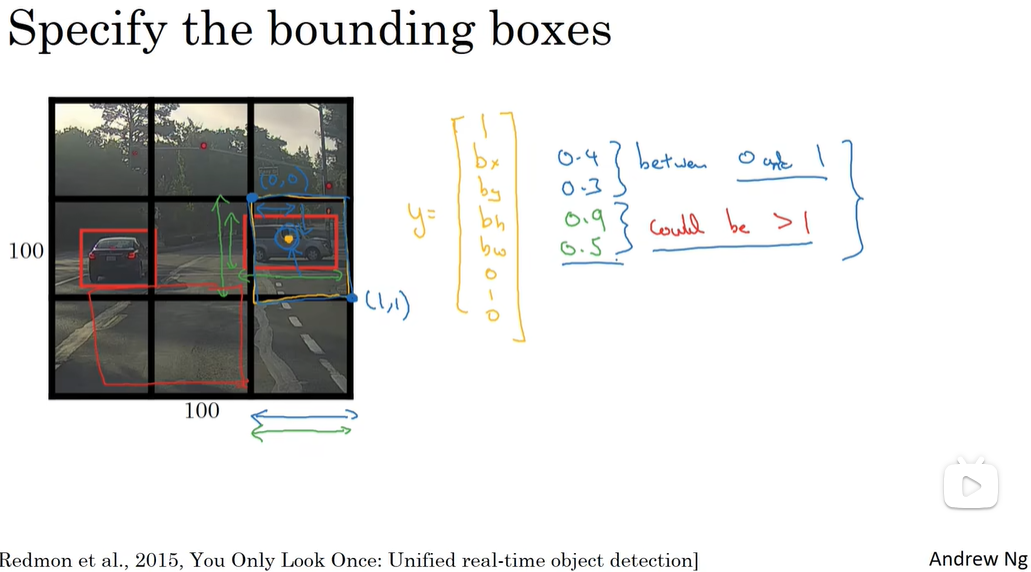 Specify the bounding boxes
100
100
(0,0)
(1,1)
y=
1
bx
by
bh
bw
0
1
0
0.4
0.3
0.9
0.5
between 0 and 1
could be >1
Redmon et al., 2015, You Only Look Once: Unified real-time object detection]
Andrew Ng